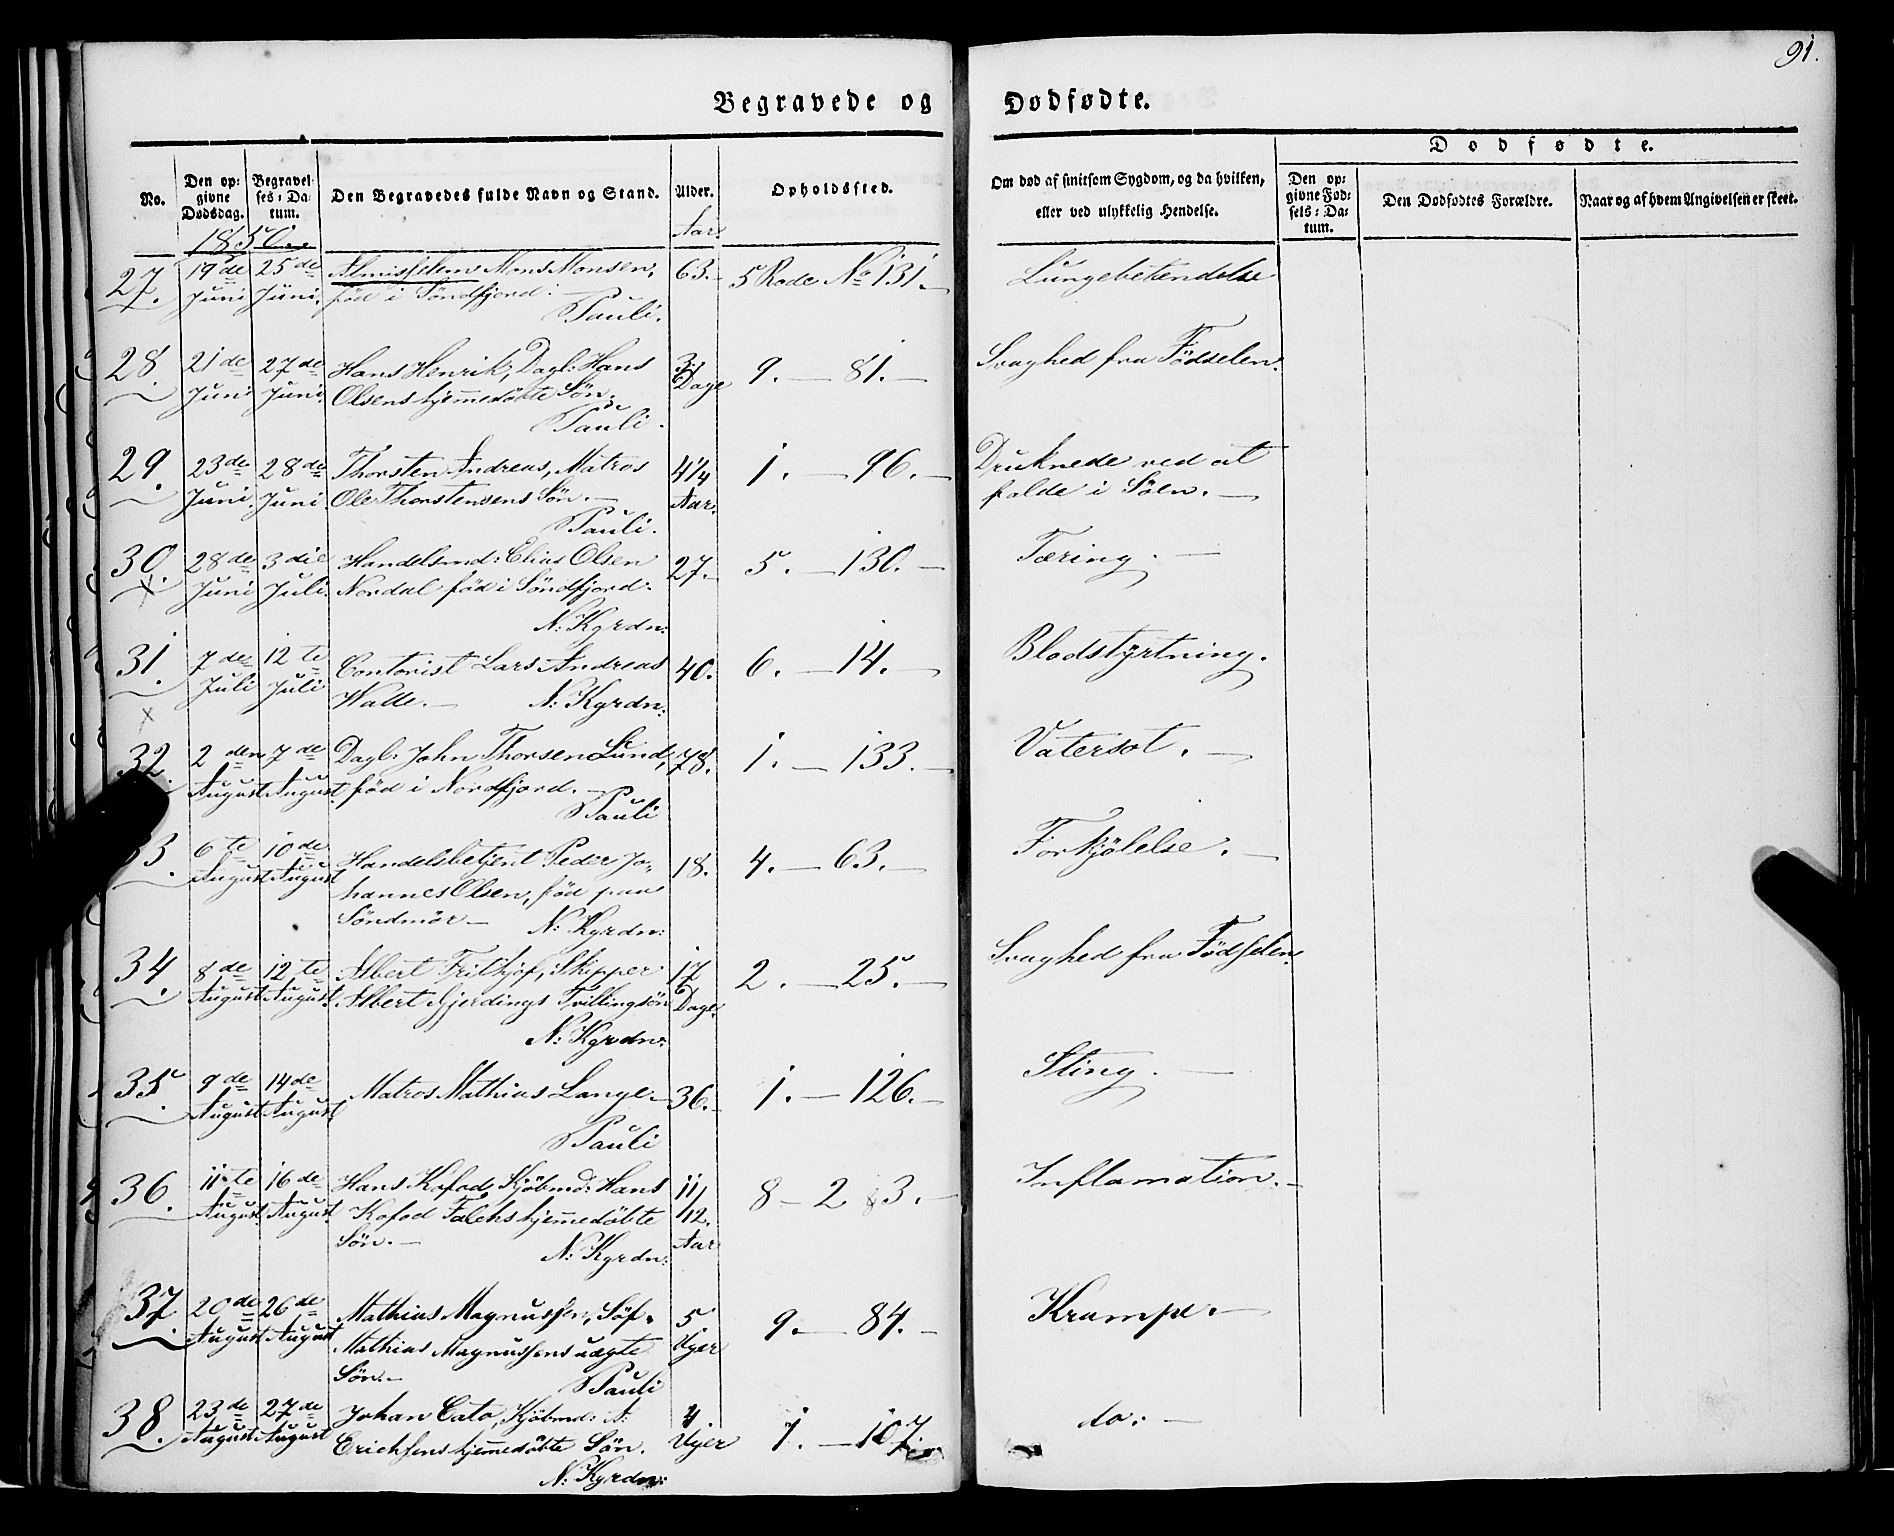 91.
Begravede og Dødfødte.
No.
Den op-
givne
Dødsdag.
Begravel-
ses-Da-
tum.
Den Begravedes fulde Navn og Stand.
Alder.
Aar.
Opholdssted.
Om død af smitsom Sygdom, og da hvilken,
eller ved ulykkelig Hendelse.
Dødfødte.
Den op-
givne Fød-
sels-Da-
tum.
Den Dødfødtes Forældre.
Naar og af hvem Angivelsen er skeet.
1850.
27. 19de Juni 25de Juni. Almisselem Mons Monsen, 63. 5 Rode No 131. Lungebetendelse
fød i Søndfjord.
Pauli.
28. 21de Juni 27de Juni. Hans Henrik, Dagl: Hans Dage 9. — 81. — Svaghed fra Fødselen.
Olsens hjemedøbte Søn.
Pauli.
29. 23de Juni. 28de Juni. Thorsten Andreas, Matros 4 1/4 Aar. 1. — 96. — Druknede ved at
Ole Thorstensens Søn. — falde i Söen. —
Pauli.
30. 28de Juni 3die Juli. Handelsmd: Elias Olsen 27. 5. — 130. — Tæring. —
Nordal fød i Søndfjord.
N: Kgrdn:
31. 7de Juli 12te Juli Contorist Lars Andreas 40. 6. — 14. — Blodstyrtning.
Walle. — N: Kgrdn:
32. 2den August 7de August. Dagl: John Thorsen Lund, 78. 1. — 133. — Vatersot. —
fød i Nordfjord. —
Pauli
33. 6te August 10de August Handelsbetjent Peder Jo- 18. 4. — 63. — Forkjølelse. —
hannes Olsen, fød paa
Søndmør — N: Kgrdn:
34. 8de August 12te August. Albert Frithjof, Skipper 17 Dage. 2. — 25. — Svaghed fra Fødselen
Albert Gjerdings Tvillingsøn
N: Kgrdn:
35. 9de August 14de August Matros Mathias Lange. 36. 1. — 126. — Sting. —
Pauli
36. 11te August 16de August. Hans Kofod, Kjøbmd: Hans 11/12. Aar 8 — 2 3. — Inflamation. —
Kofod Falchs hjemedøbte
Søn. — N: Kgrdn:
37. 20de August 26de August Mathias Magnussen, Söf. 5 Uger 9. — 84. — Krampe. —
Mathias Magnussens uægte
Søn. — Pauli
38. 23de August 27de August Johan Cato, Kjøbmd: A: 4 Uger 1. — 107. do. —
Erichsens hjemedøbte Søn.
N: Kgrdn: